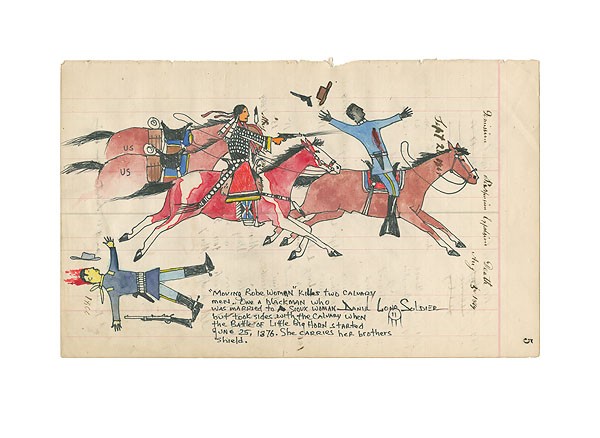 US
US
Sept 2
Death
Aug
"MOVING ROBE WOMAN" KILLS TWO CALVARY
MEN.. ONE A BLACKMAN WHO
WAS MARRIED TO A SIOUX WOMAN DANIEL LONG SOLDIER
but took sides with the CALVARY WHEN
the BATTLE of LITTLE Big HORN STARTED
JUNE 25, 1876. SHE CARRIES her brothers
shield.
5